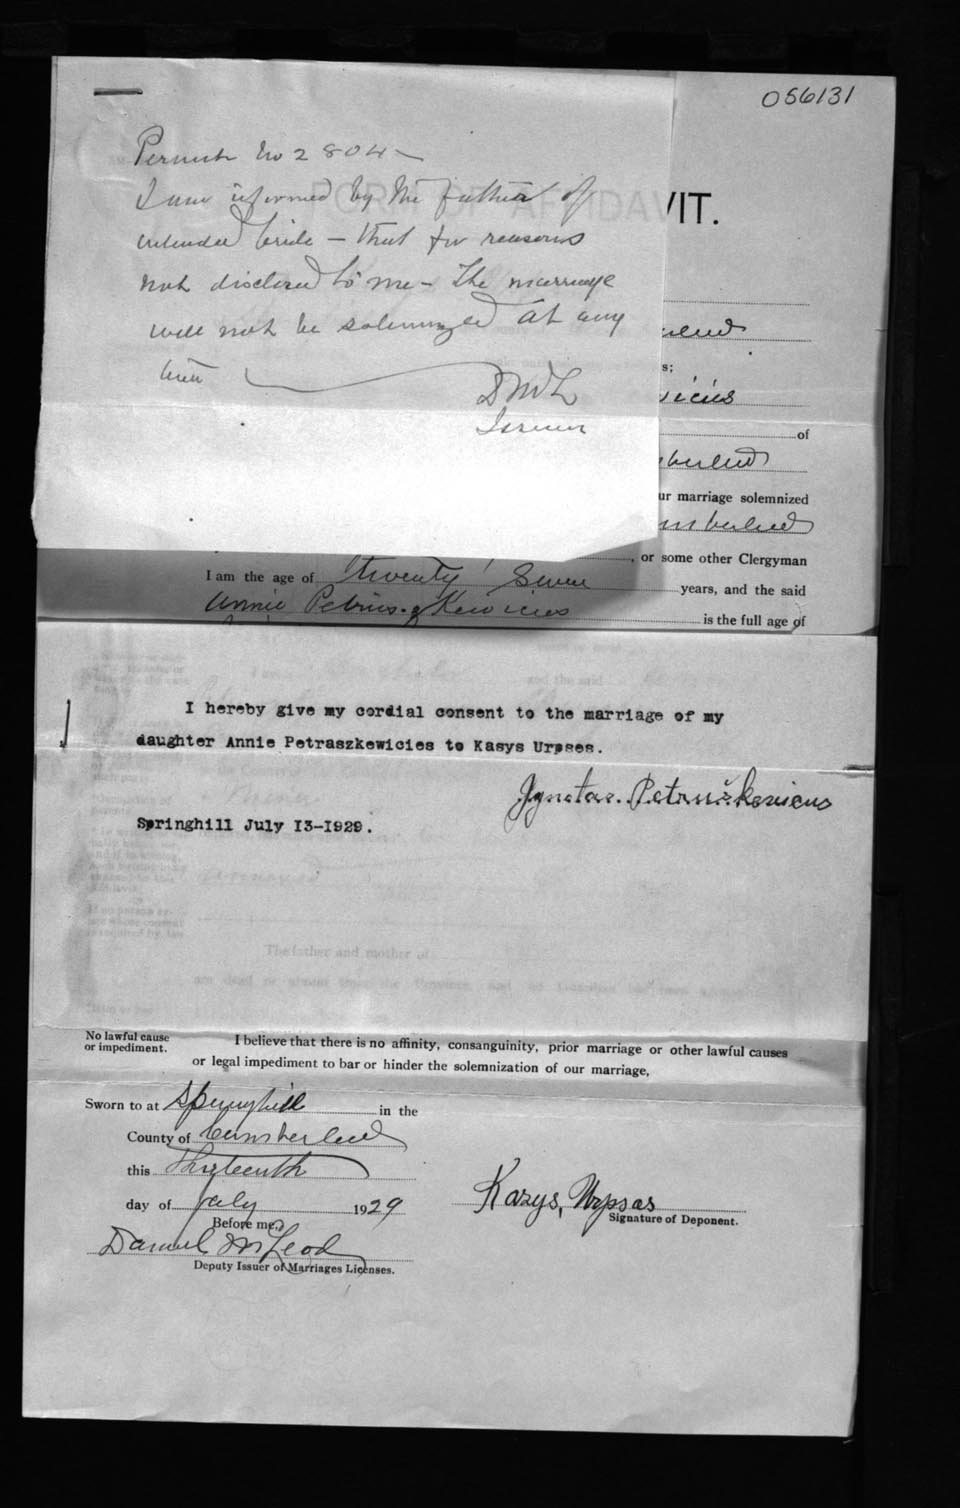 056131
Permit No 2804
I am informed by the father of
intended bride - that for reasons
not disclosed to me - the marriage
will not be solemnized at any
time
DMcL
Issuer
FORM OF AFFIDAVIT.
s;
vicius
of
berland
ur marriage solemnized
mberland
, or some other Clergyman
I am the age of twenty seven years, and the said
Annie is the full age of
I hereby give my cordial consent to the marriage of my
daughter Annie Petraszkewicies to Kasys Urpses.
Petruškevicus
Springhill July I3-I929.
and the said
The father and mother of
No lawful cause
or impediment.
I believe that there is no affinity, consanguinity, prior marriage or other lawful causes
or legal impediment to bar or hinder the solemnization of our marriage,
Sworn to at Springhill in the
County of Cumberland
this thirteenth
day of July 1929
Before me,
Kazys, Urpsas
Signature of Deponent.
Daniel McLeod
Deputy Issuer of Marriages Licenses.